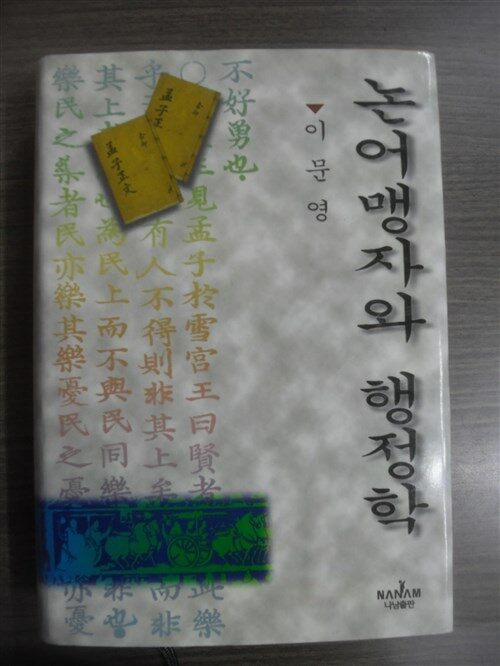 논어맹자와 행정학
이문영
不好勇也
○ 王見孟子於雪宮王曰賢者 此樂
乎 有人不得則非其上矣 而非
其上 也為民上而不與民同樂 也
樂民之樂者民亦樂其樂憂民之憂 亦憂
孟子正
孟子正文
NANAM
나남출판